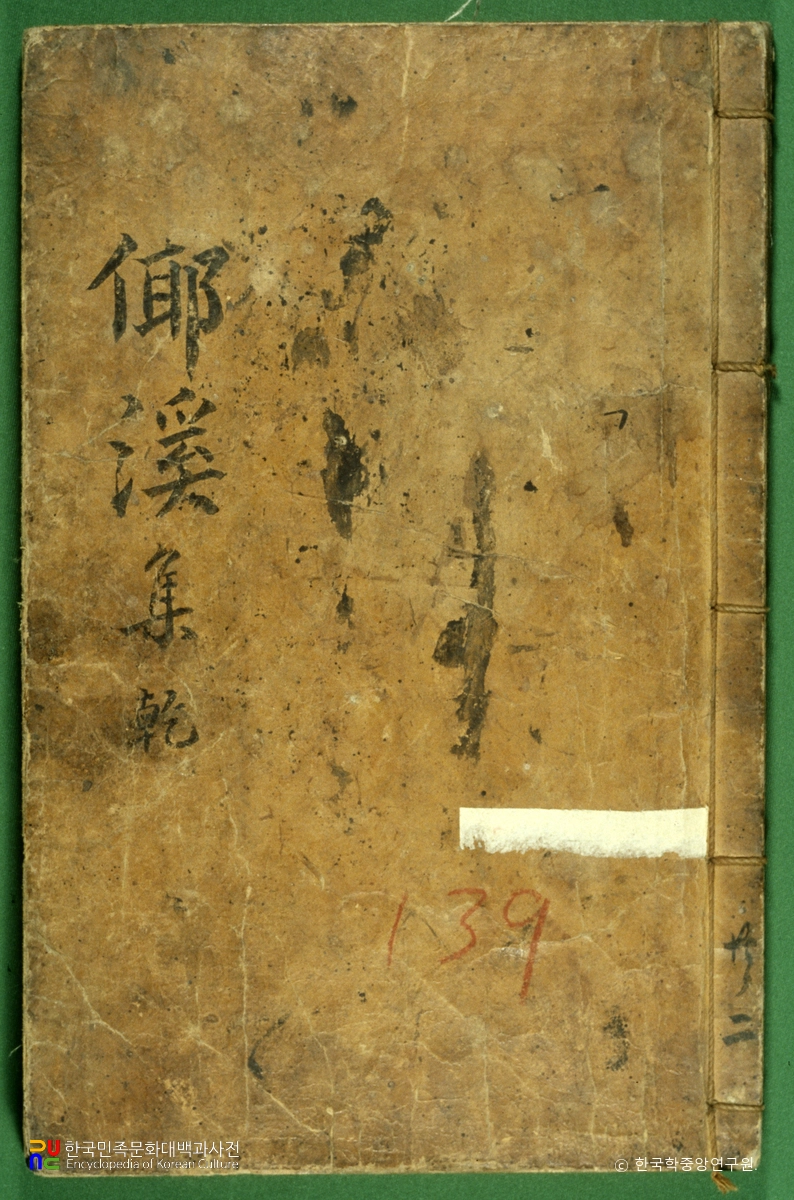 倻溪集 乾
139
共二
한국민족문화대백과사전
Encyclopedia of Korean Culture
© 한국학중앙연구원.